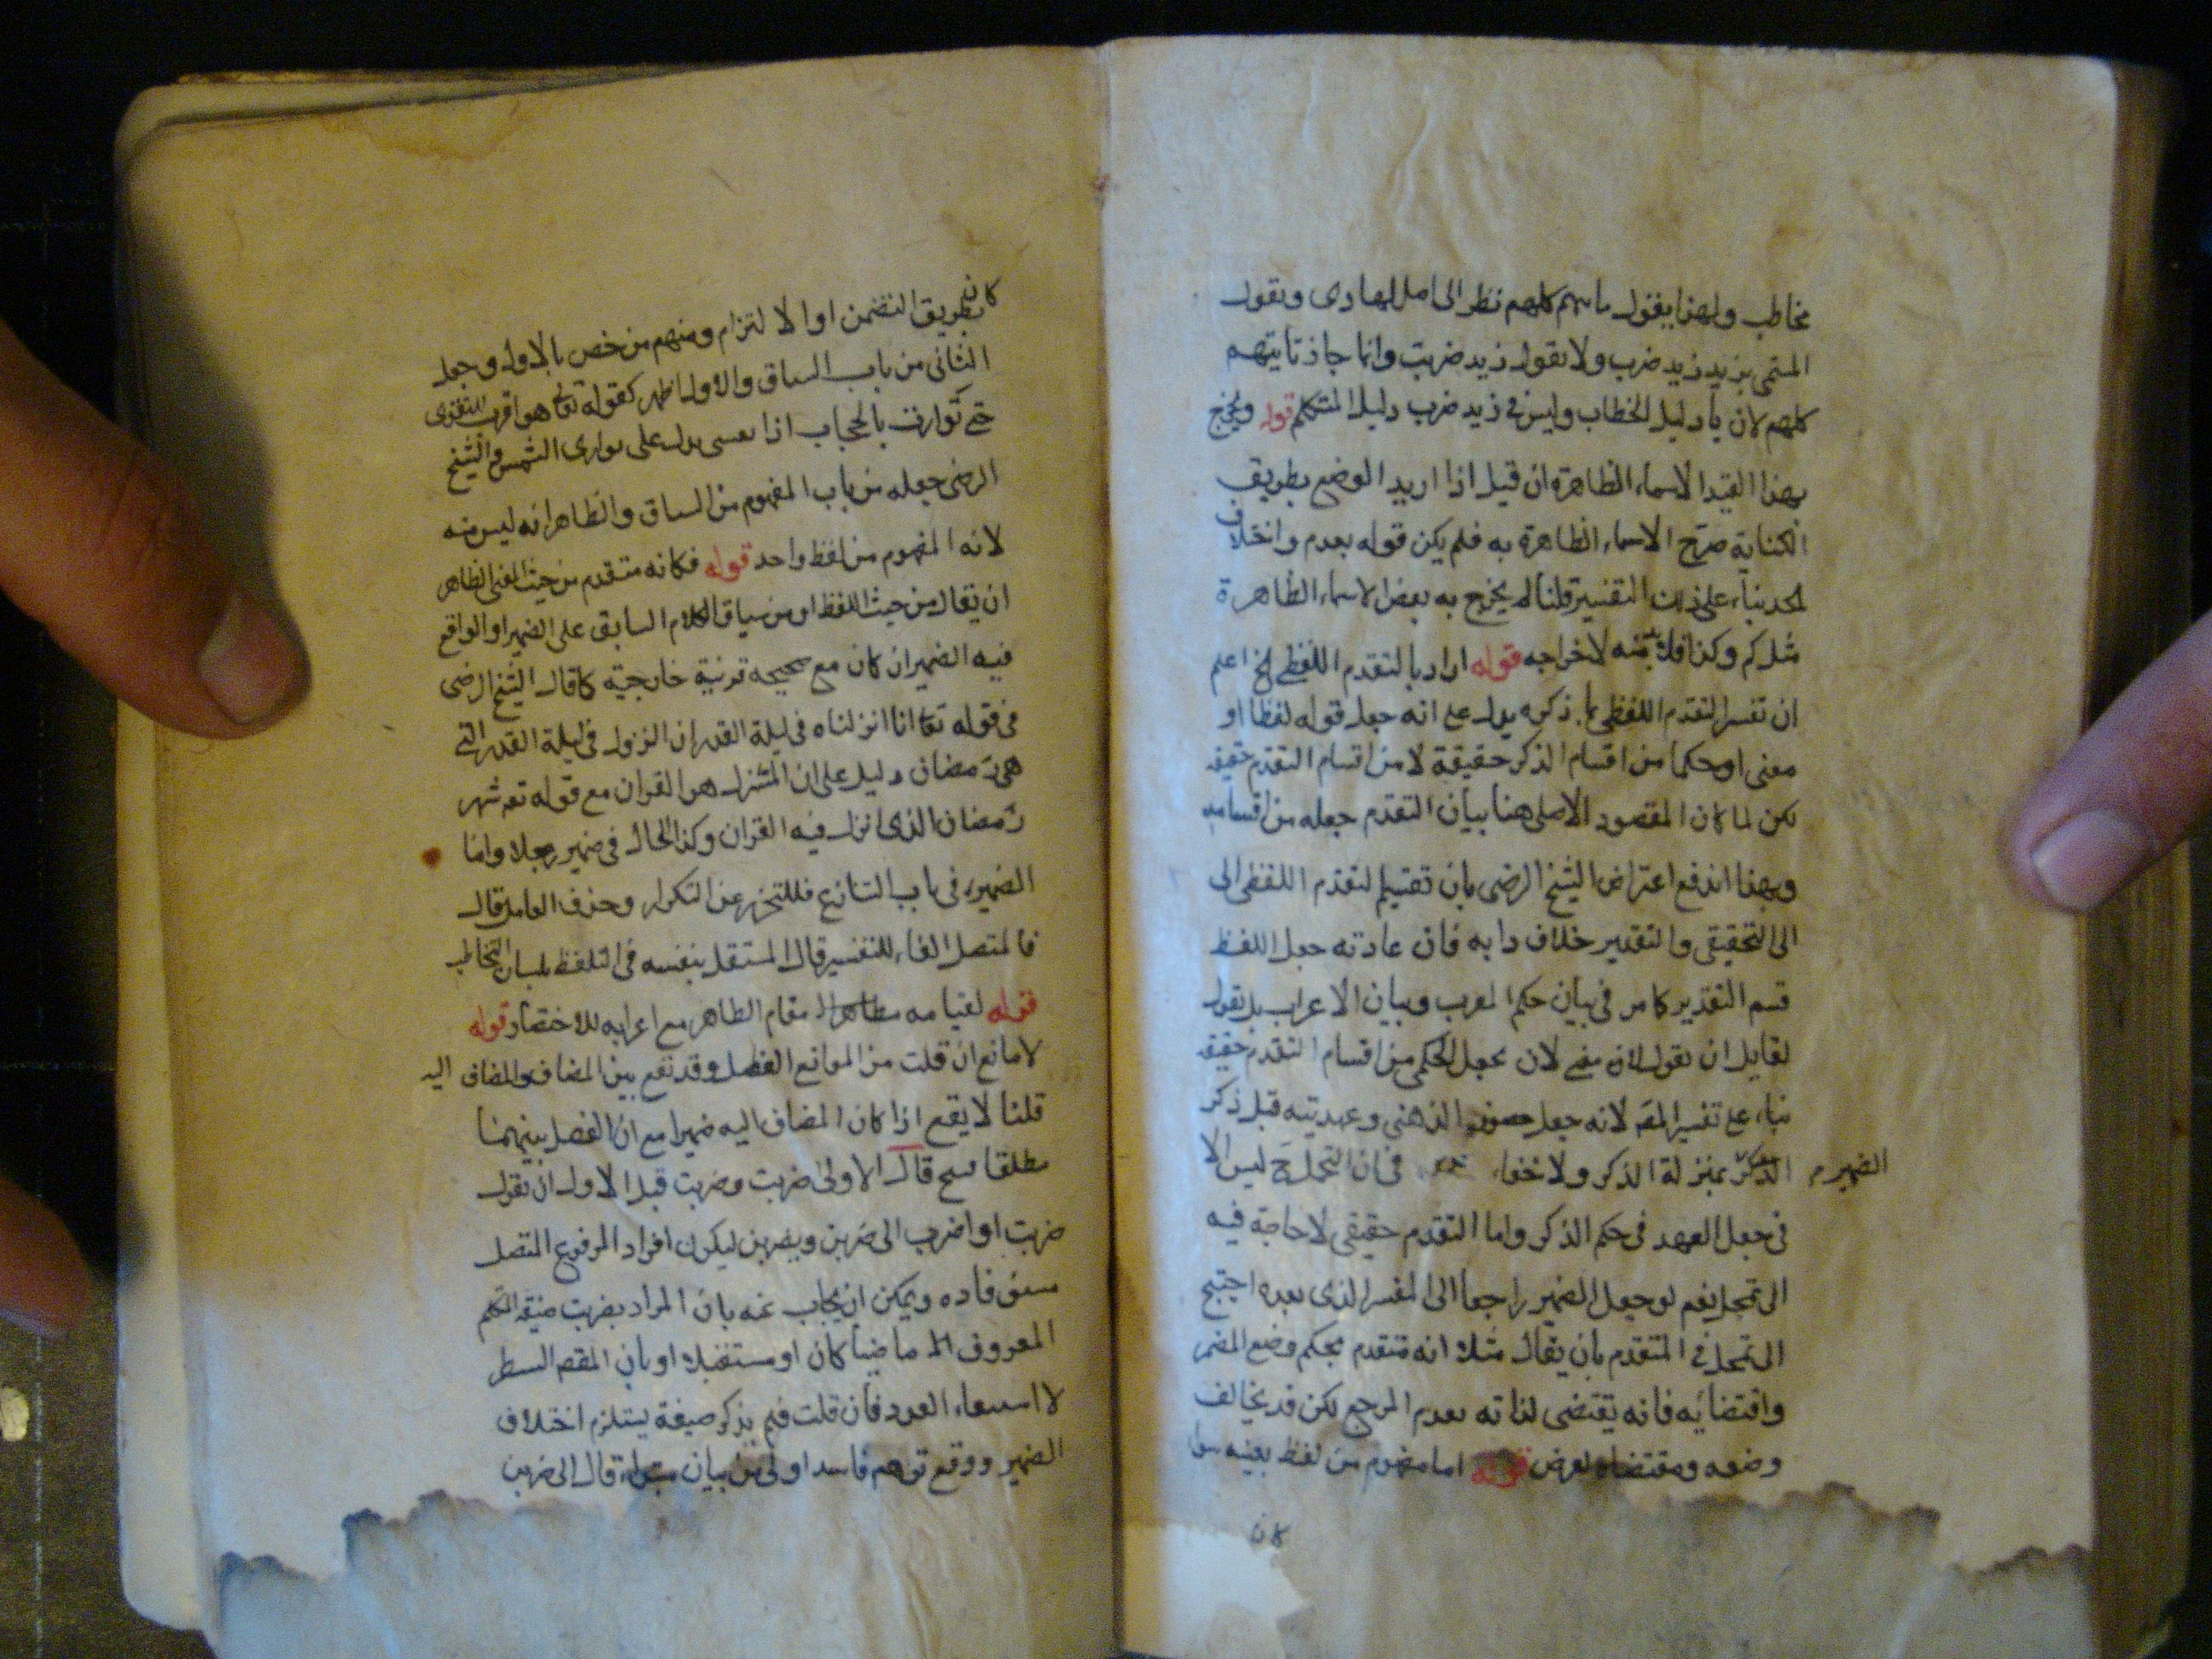 مخاطب ولهذا يقول يا تميم كلهم نظر الى اصل المنادى ويقول
المسمى بزيد زيد ضرب ولا يقول زيد ضربت وانما جاز يا تميم
كلهم لان يا دليل الخطاب وليس في زيد ضرب دليل المتكلم قوله ويخرج
بهذا القيد الاسماء الظاهرة ان قيل اذا اريد الوضع بطريق
الكناية خرج الاسماء الظاهرة به فلم يكن قوله تقدم واختلاف
بناء على ذلك التفسير قلنا لم يخرج به بعض الاسماء الظاهرة
مثل كم وكذا فلا بد منه لاخراجه قوله اراد بالتقدم اللفظي الخ اعلم
ان تفسير التقدم اللفظي بما ذكره يدل على انه جعل قوله لفظا او
معنى او حكما من اقسام الذكر حقيقة لا من اقسام التقدم حقيقة
لكن لما كان المقصود الاصلي هنا بيان التقدم جعله من اقسامه
وبهذا اندفع اعتراض الشيخ الرضى بان تقسيم التقدم اللفظي الى
الى التحقيقي والتقدير خلاف دابه فان عادته جعل اللفظ
قسم التقدير كما مر في بيان حكم المعرب وبيان الاعراب بل نقول
لقايل ان يقول لانه معنى لان يجعل الحكمي من اقسام التقدم حقيقة
بناء على تفسير المصـ لانه جعل حضوره الذهني وعهديته قبل ذكر
الضمير الذكر بمنزلة الذكر ولا خفاء في ان التمحل ح ليس الا
في جعل العهد في حكم الذكر واما التقدم حقيقي لا حاجة فيه
الى تمحل نعم لو جعل الضمير راجعا الى المفسر الذى بعده احتيج
الى تمحل في المتقدم بان يقال مثلا انه متقدم بحكم وضع المضمر
واقتضائه فانه يقتضى لذاته تقدم المرجع لكن قد يخالف
وضعه ومقتضاه لغرض قوله اما مفهوم من لفظ بعينه سواء
كان
كان بطريق التضمن او الالتزام ومنهم من خص بالاول وجعل
الثانى من باب السياق والاول اظهر كقوله تعالى هو اقرب للتقوى
حتى توارت بالحجاب اذا يدل على توارى الشمس والشيخ
الرضى جعله من باب المفهوم من السياق والظاهر انه ليس منه
لانه المفهوم من لفظ واحد قوله فكانه متقدم من حيث المعنى الظاهر
ان يقال من حيث اللفظ او من سياق الكلام السابق على الضمير او الواقع
فيه الضمير ان كان مع صحيحه قرينة خارجية كما قال الشيخ الرضى
فى قوله تعا انا انزلناه فى ليلة القدر ان النزول فى ليلة القدر التى
هى رمضان دليل على ان المنزل هو القران مع قوله تعـ شهر
رمضان الذى انزل فيه القران وكذا الحال فى ضمير رجلا واما
الضمير فى باب التنازع فللتحرز عن التكرار وحذف العامل قال
فالمتصل الفاء للتفسير قال المستقل بنفسه فى التلفظ بلسان التخاطب
قوله لقيامه مقام الظاهر مع اعرابه للاختصار قوله
لا مانع ان قلت من الموانع الفصل وقد تقع بين المضاف والمضاف اليه
قلنا لا يقع اذا كان المضاف اليه ضميرا مع ان الفصل بينهما
مطلقا قبيح قال الاولى ضربت وضربت قيل الاول ان يقول
ضربت او اضرب الى ضربن ويضربن ليكون افراد المرفوع المتصل
ويمكن ان يجاب عنه بان المراد بضربت صيغة المتكلم
المعروف الـ ماضيا كان او مستقبلا او بان المقصـ
لا استيفاء العدد فان قلت فلم يذكر صيغة يستلزم اختلاف
الضمير ووقع توهم فاسد اولى من بيان قال الى ضربن